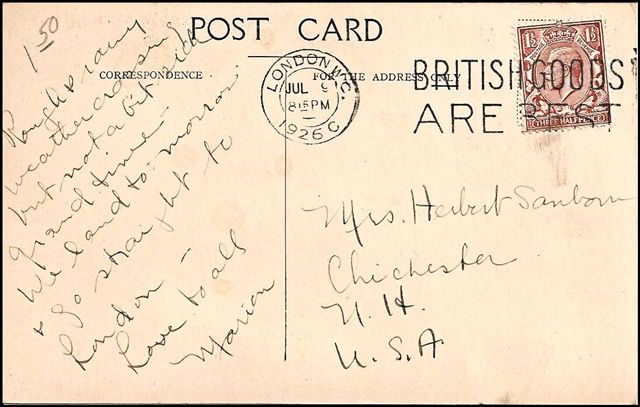 1 50
POST CARD
CORRESPONDENCE
FOR THE ADDRESS ONLY
LONDON. W.C.
JUL 9
8 15 PM
1926
C
BRITISH GOODS
ARE BEST
1½ 1½
THREE HALFPENCE
Rough & rainy
weather crossing
but not a bit sick
grand time -
We land to-morrow
& go straight to
London -
Love to all
Marion
Mrs. Herbert Sanborn
Chichester
N. H.
U. S. A